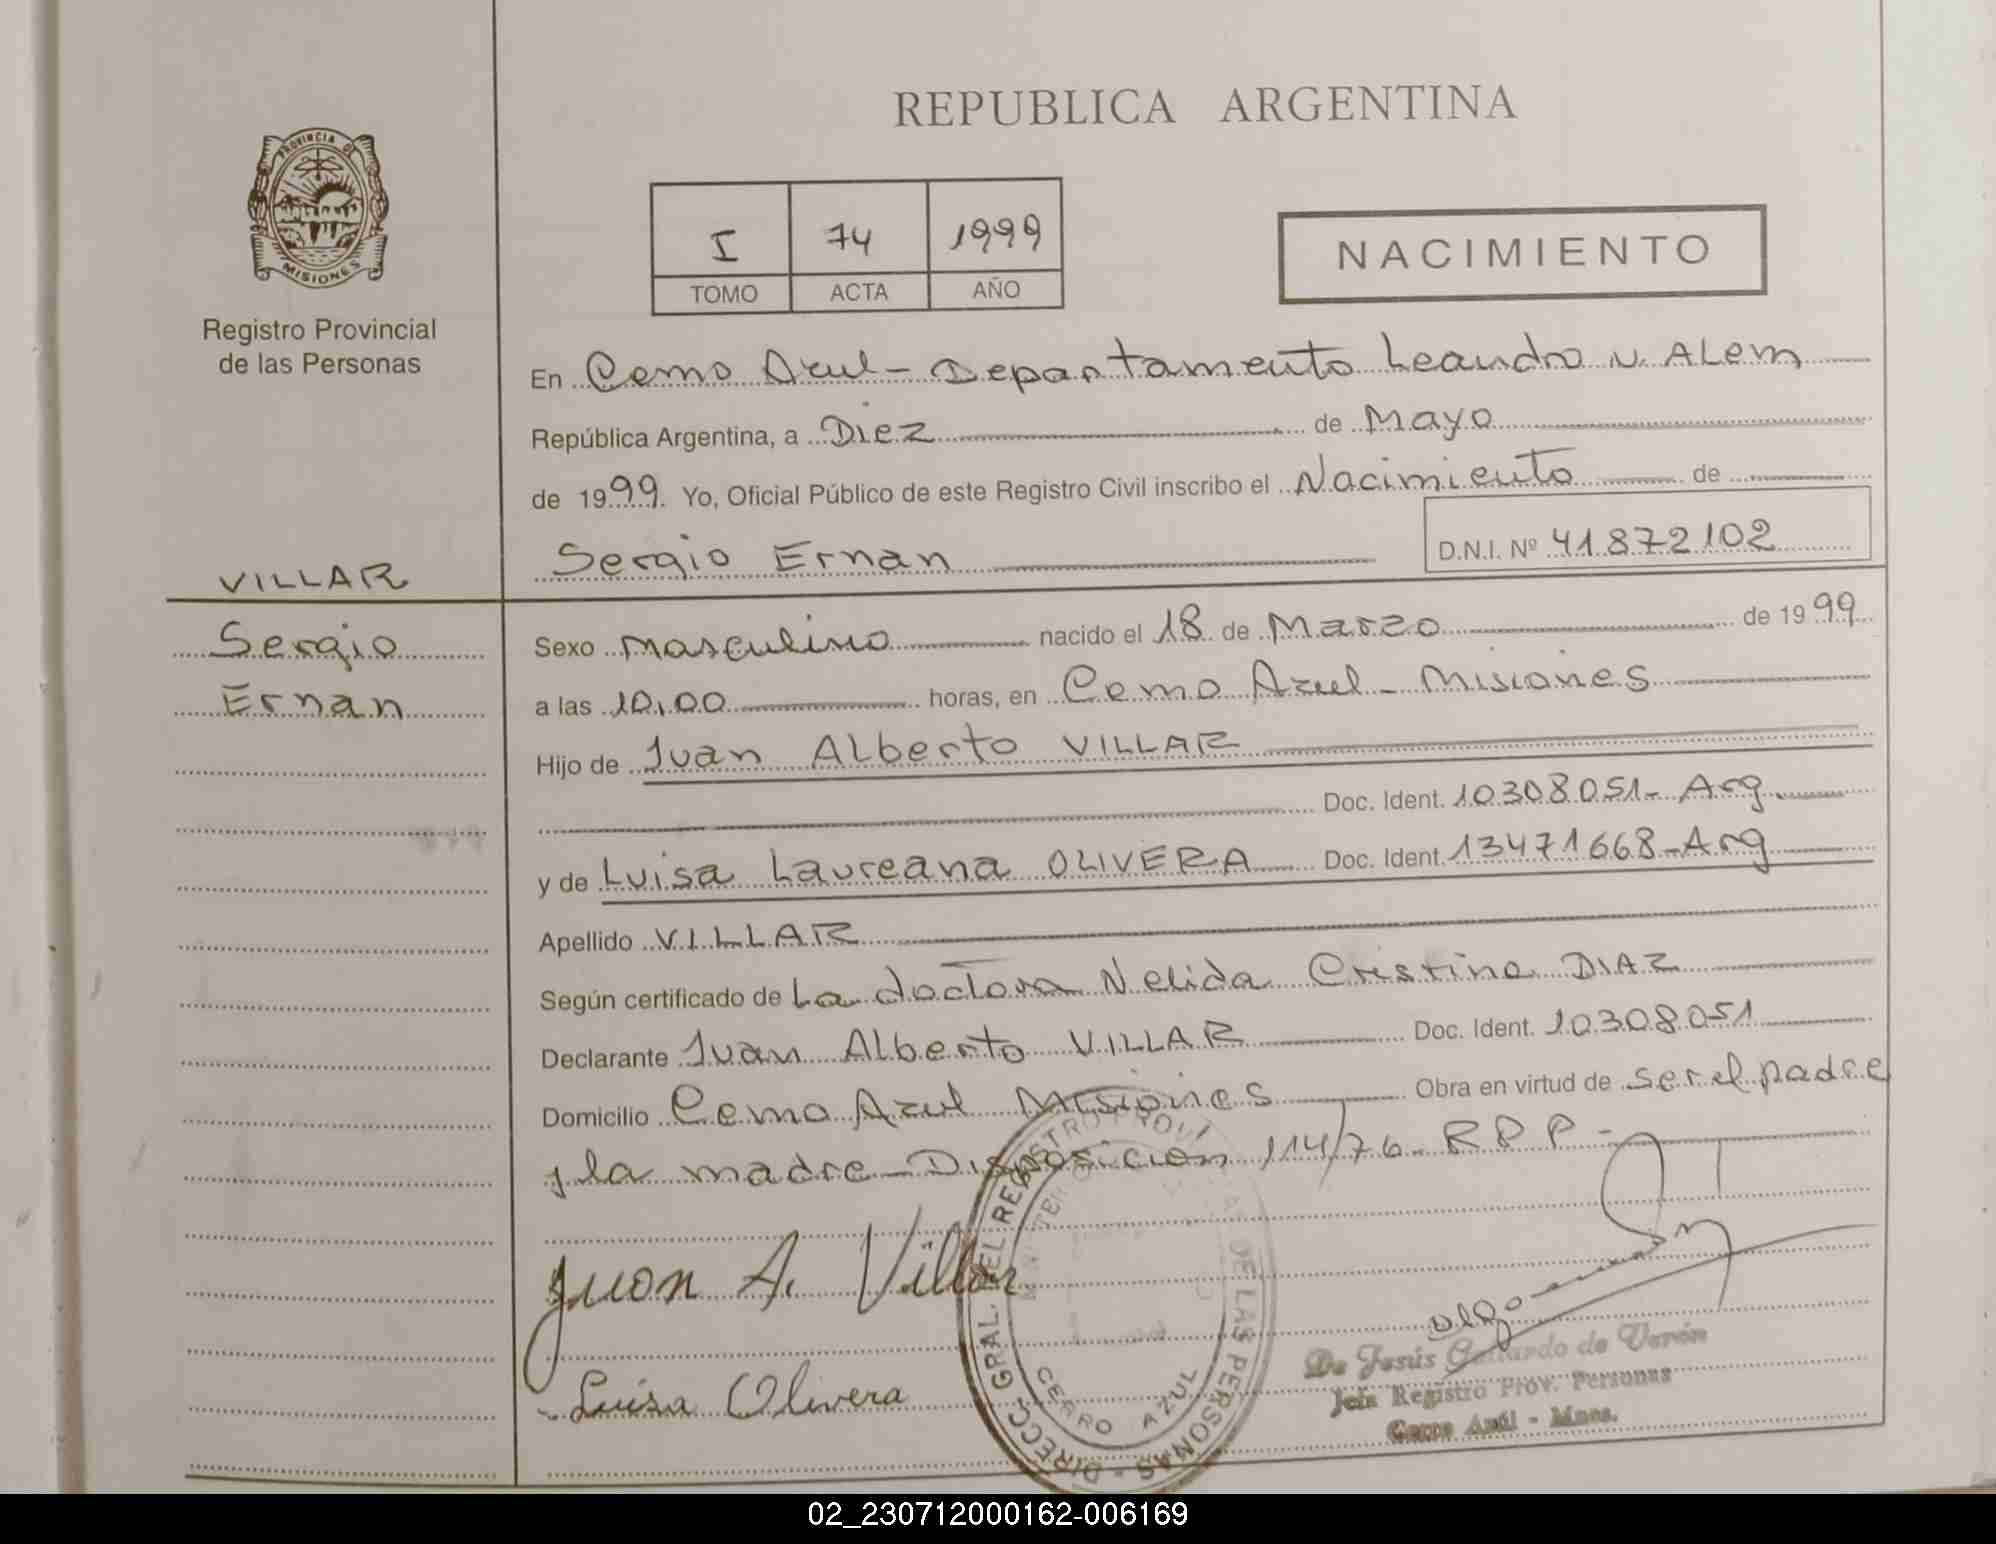 REPUBLICA ARGENTINA
PROVINCIA DE
MISIONES
Registro Provincial
de las Personas
I 74 1999
TOMO ACTA AÑO
NACIMIENTO
En Cerro Azul - Departamento Leandro N. ALem
República Argentina, a Diez de Mayo
de 1999. Yo, Oficial Público de este Registro Civil inscribo el Nacimiento de
Sergio Ernan D.N.I. Nº 41872102
VILLAR
Sergio
Ernan
Sexo Masculino nacido el 18 de Marzo de 1999
a las 10,00 horas, en Cerro Azul - Misiones
Hijo de Juan ALberto VILLAR
Doc. Ident. 10308051- Arg.
y de Luisa Laureana OLIVERA Doc. Ident. 13471668-Arg
Apellido VILLAR
Según certificado de La doctora Nelida Cristina DIAZ
Declarante Juan ALberto VILLAR Doc. Ident. 10308051
Domicilio Cerro Azul Misiones Obra en virtud de ser el padre
y la madre - Disposición 114/76 - R P P -
Juan A. Villar
Luisa Olivera
DIRECC. GRAL. DEL REGISTRO PROV. DE LAS PERSONAS -
CERRO AZUL
Olga
De Jesús Gallardo de Verón
Jefa Registro Prov. Personas
Cerro Azúl - Mnes.
02_230712000162-006169